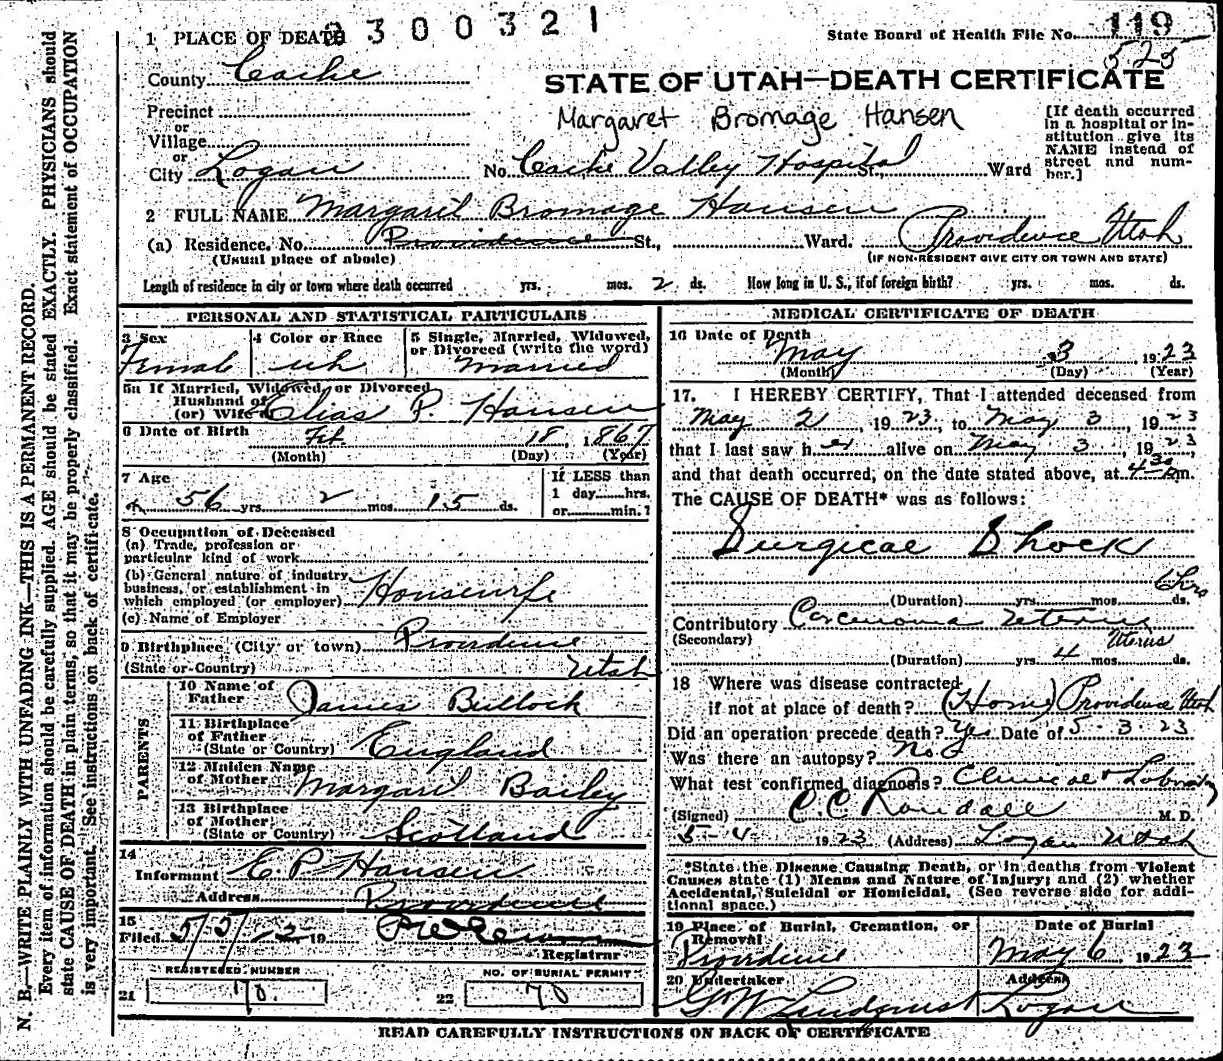 2300321
State Board of Health File No. 119
525
1 PLACE OF DEATH
County Cache
STATE OF UTAH—DEATH CERTIFICATE
Margaret Bromage Hansen
Precinct
or
Village
or
City Logan No. Cache Valley Hospital St., Ward
[If death occurred in a hospital or institution give its NAME instead of street and number.]
2 FULL NAME Margaret Bromage Hansen
(a) Residence, No. Providence St., Ward. Providence Utah
(Usual place of abode) (IF NON-RESIDENT GIVE CITY OR TOWN AND STATE)
Length of residence in city or town where death occurred yrs. mos. 2 ds. How long in U. S., if of foreign birth? yrs. mos. ds.
PERSONAL AND STATISTICAL PARTICULARS
3 Sex 4 Color or Race 5 Single, Married, Widowed, or Divorced (write the word)
Female wh Married
5a If Married, Widowed, or Divorced
Husband of
(or) Wife of Elias P. Hansen
6 Date of Birth Feb 18, 1867
(Month) (Day) (Year)
7 Age If LESS than
56 yrs. 2 mos. 15 ds. 1 day hrs. or min.?
8 Occupation of Deceased
(a) Trade, profession or particular kind of work
(b) General nature of industry, business, or establishment in which employed (or employer) Housewife
(c) Name of Employer
9 Birthplace (City or town) Providence
(State or Country) Utah
PARENTS
10 Name of Father James Bullock
11 Birthplace of Father (State or Country) England
12 Maiden Name of Mother Margaret Bailey
13 Birthplace of Mother (State or Country) Scotland
14
Informant E. P. Hansen
Address Providence
15
Filed 5/5/ 19
Registrar
REGISTERED NUMBER NO. OF BURIAL PERMIT
21 70. 22 70
MEDICAL CERTIFICATE OF DEATH
16 Date of Death
May 3 1923
(Month) (Day) (Year)
17. I HEREBY CERTIFY, That I attended deceased from
May 2, 1923, to May 3, 1923
that I last saw her alive on May 3, 1923,
and that death occurred, on the date stated above, at 4 30 pm.
The CAUSE OF DEATH* was as follows:
Surgical Shock
6 hrs
(Duration) yrs. mos. ds.
Contributory Carcenoma Uterus
(Secondary) Uterus
(Duration) yrs. 4 mos. ds.
18 Where was disease contracted
if not at place of death? (Home) Providence Utah
Did an operation precede death? Yes Date of 5-3 23
Was there an autopsy? No
What test confirmed diagnosis? Clinical &
(Signed) C. C. Randall M. D.
5-4- 1923 (Address) Logan Utah
*State the Disease Causing Death, or in deaths from Violent
Causes state (1) Means and Nature of Injury; and (2) whether
Accidental, Suicidal or Homicidal. (See reverse side for additional space.)
19 Place of Burial, Cremation, or Removal Date of Burial
Providence May 6 1923
20 Undertaker Address
G W Lindquist Logan
READ CAREFULLY INSTRUCTIONS ON BACK OF CERTIFICATE
N. B.—WRITE PLAINLY WITH UNFADING INK—THIS IS A PERMANENT RECORD.
Every item of information should be carefully supplied. AGE should be stated EXACTLY. PHYSICIANS should
state CAUSE OF DEATH in plain terms, so that it may be properly classified. Exact statement of OCCUPATION
is very important. See instructions on back of certificate.